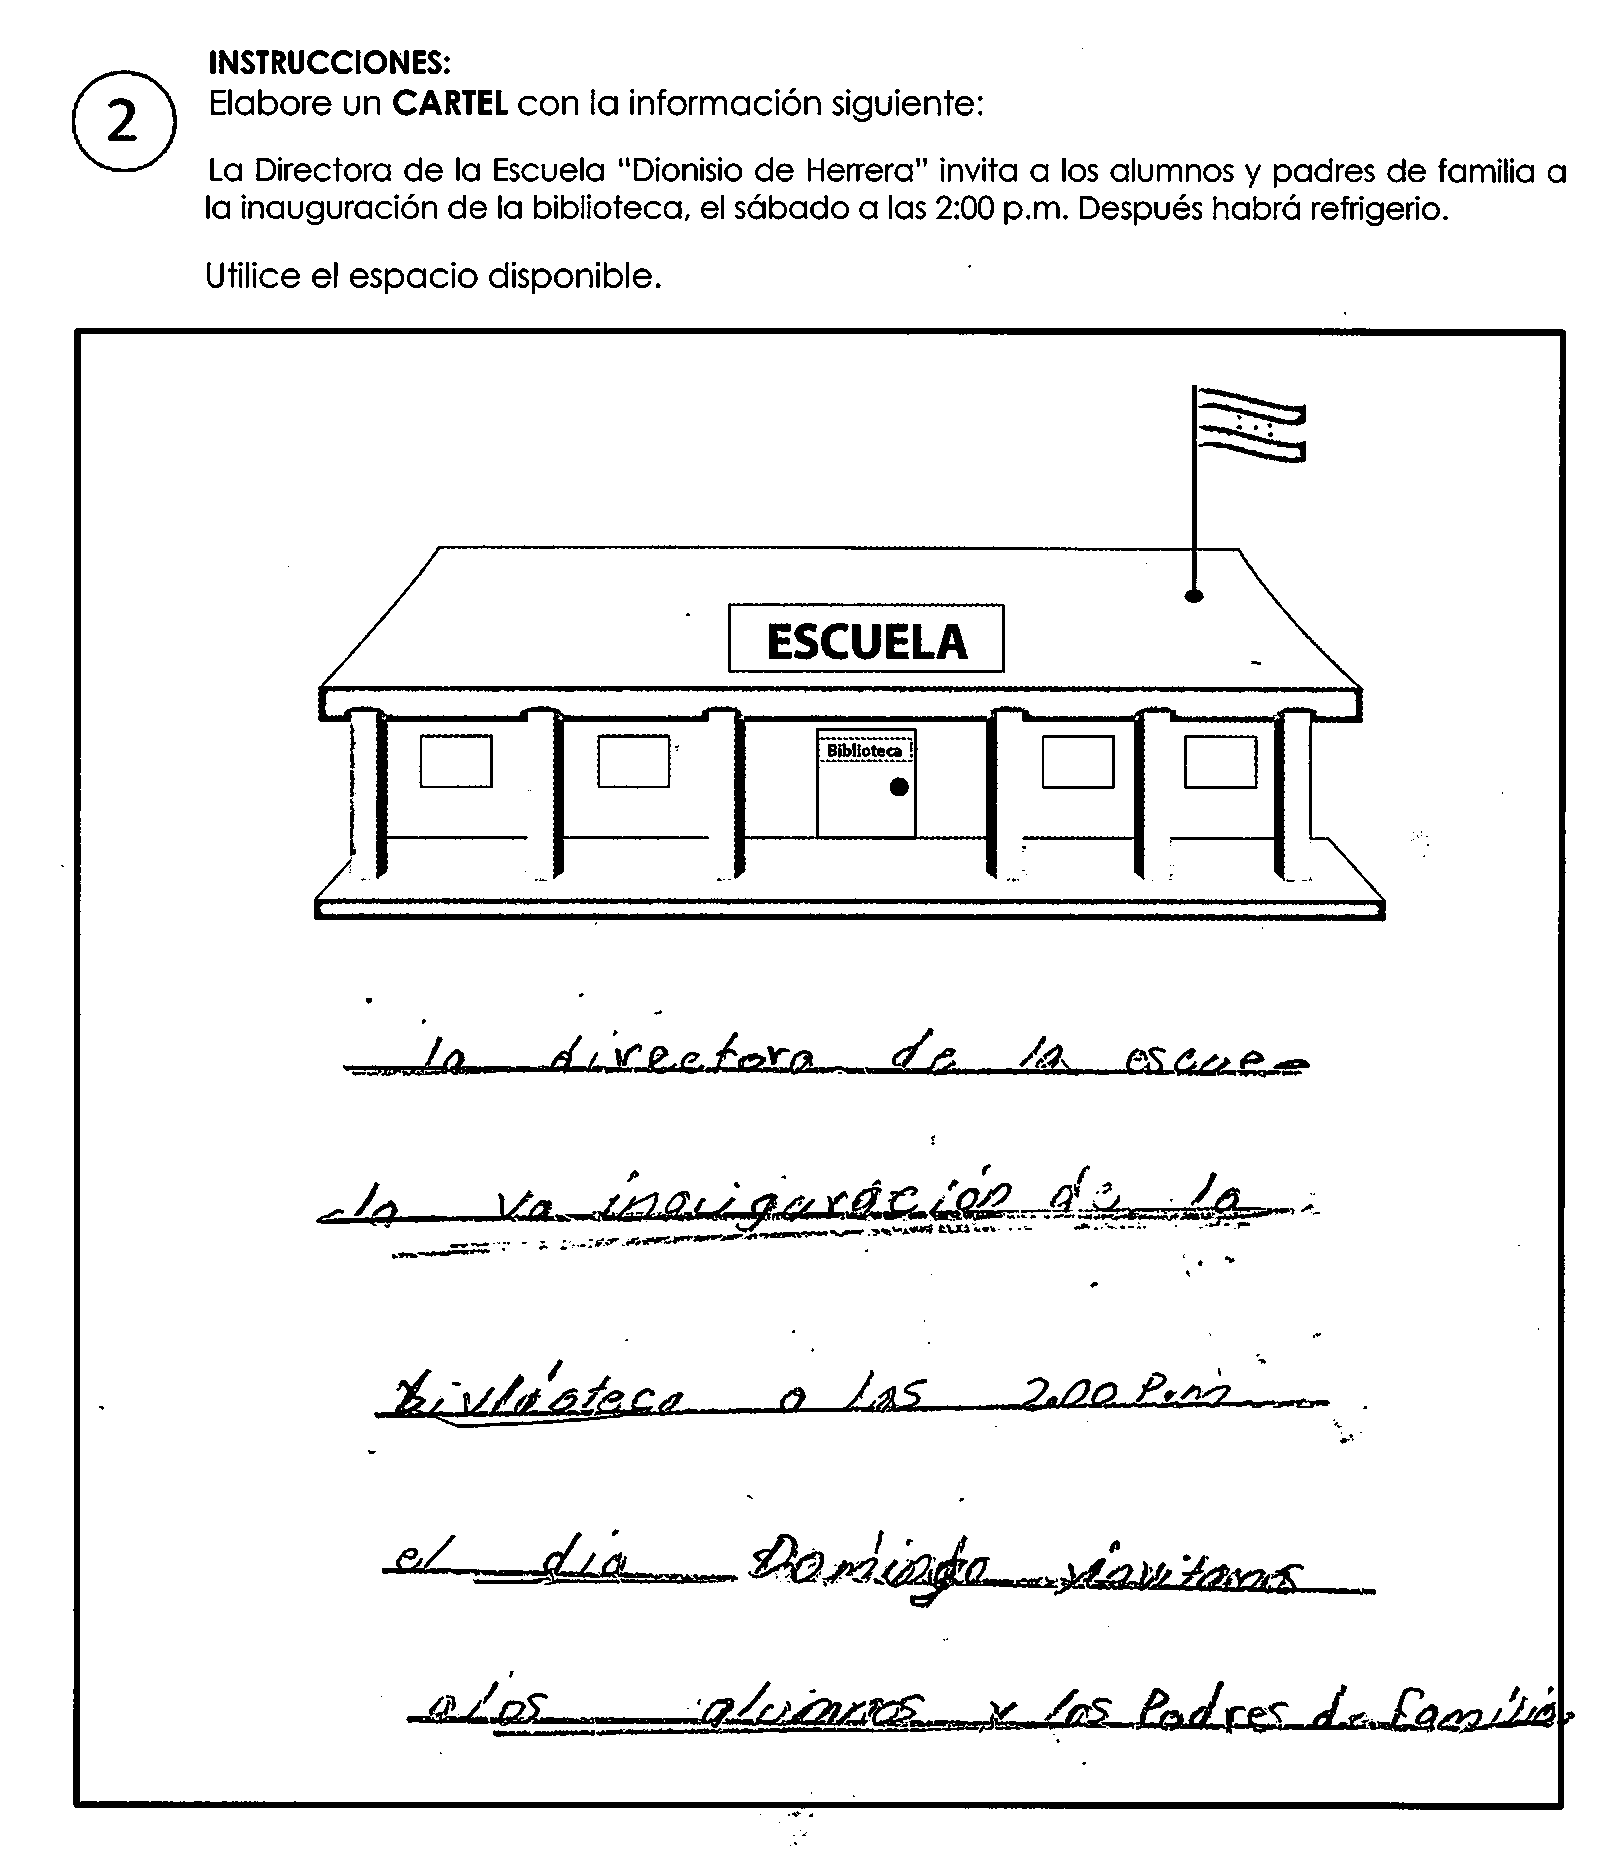 INSTRUCCIONES:
2
Elabore un CARTEL con la información siguiente:
La Directora de la Escuela "Dionisio de Herrera" invita a los alumnos y padres de familia a
la inauguración de la biblioteca, el sábado a las 2:00 p.m. Después habrá refrigerio.
Utilice el espacio disponible.
ESCUELA
Biblioteca
la directora de la escue-
la va inauiguración de la
bivlioteca a las 2.00 P.m
el dia Domingo invitamos
a los alumnos y los Padres de familia